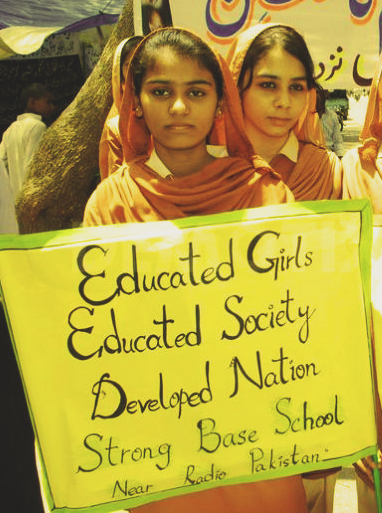 نزد
Educated Girls
Educated Society
Developed Nation
Strong Base School
Near Radio Pakistan